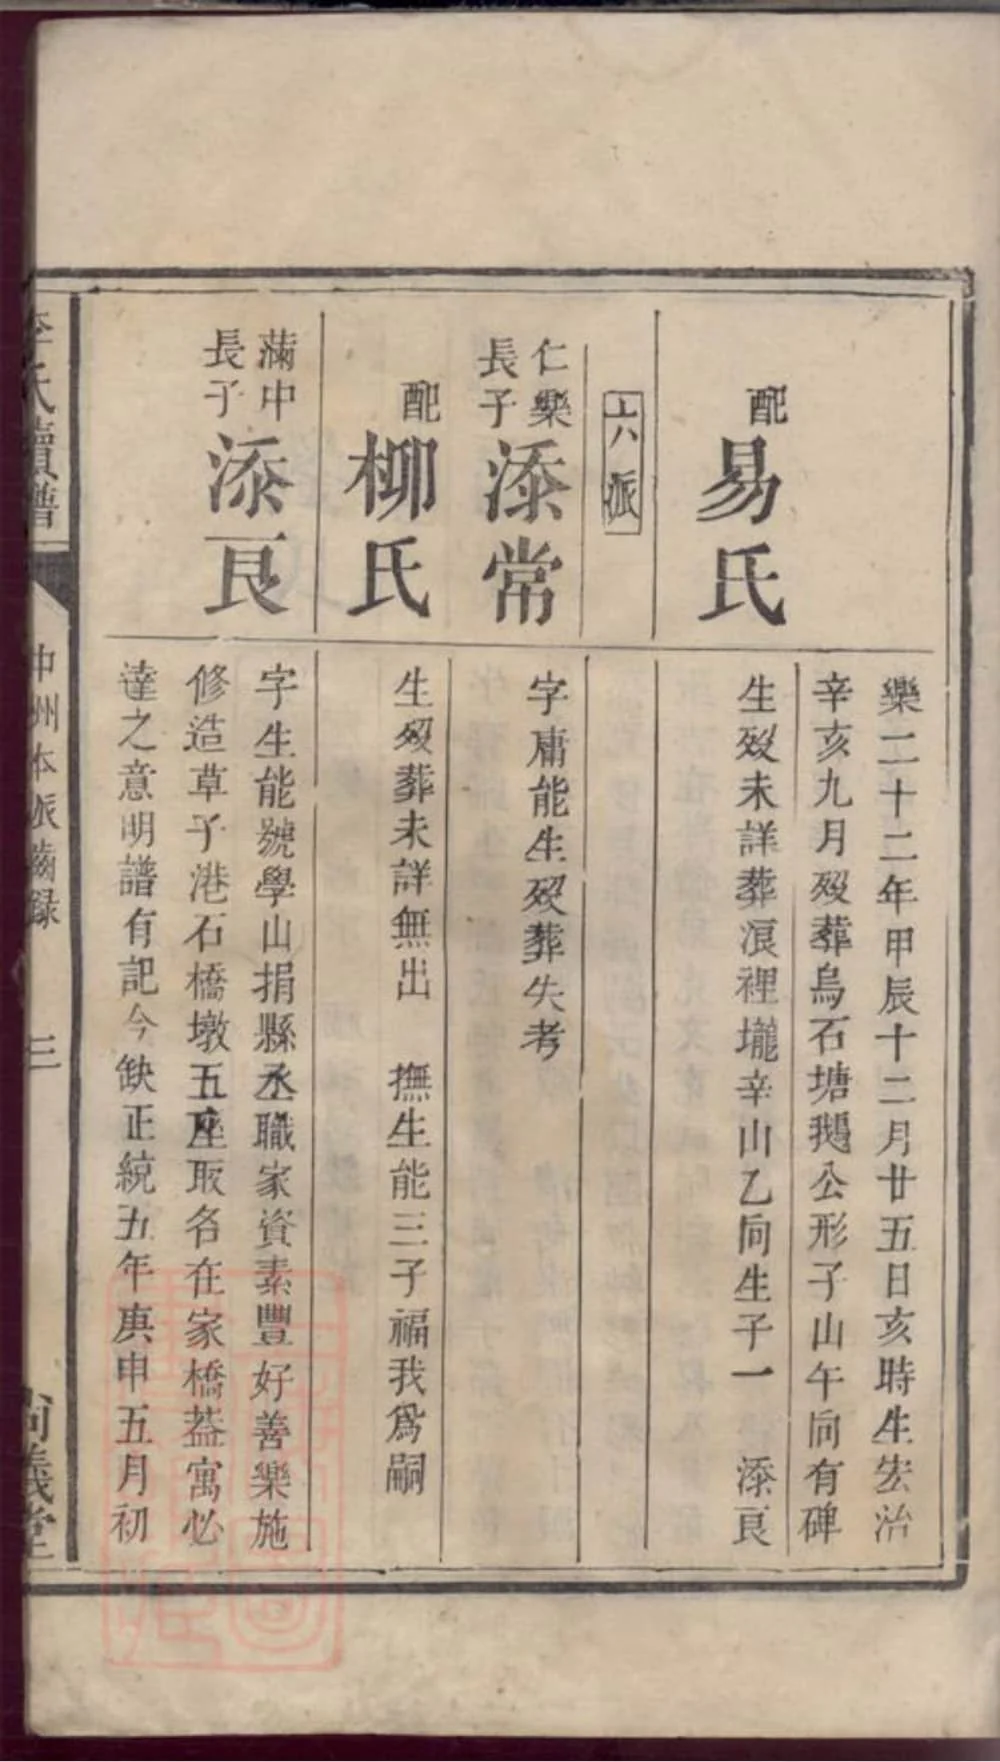 樂二十二年甲辰十二月廿五日亥時生宏治
辛亥九月歿葬烏石塘鵝公形子山午向有碑
配
易氏
生歿未詳葬浪裡壠辛山乙向生子一 添良
六派
仁樂
長子
添常
字庸能生歿葬失考
配
柳氏
生歿葬未詳無出 撫生能三子福我爲嗣
滿中
長子
添良
字生能號學山捐縣丞職家資素豐好善樂施
修造草子港石橋墩五座取名在家橋葢寓必
達之意明譜有記今缺正統五年庚申五月初
李氏續譜
中州本派齒録
三
尚義堂